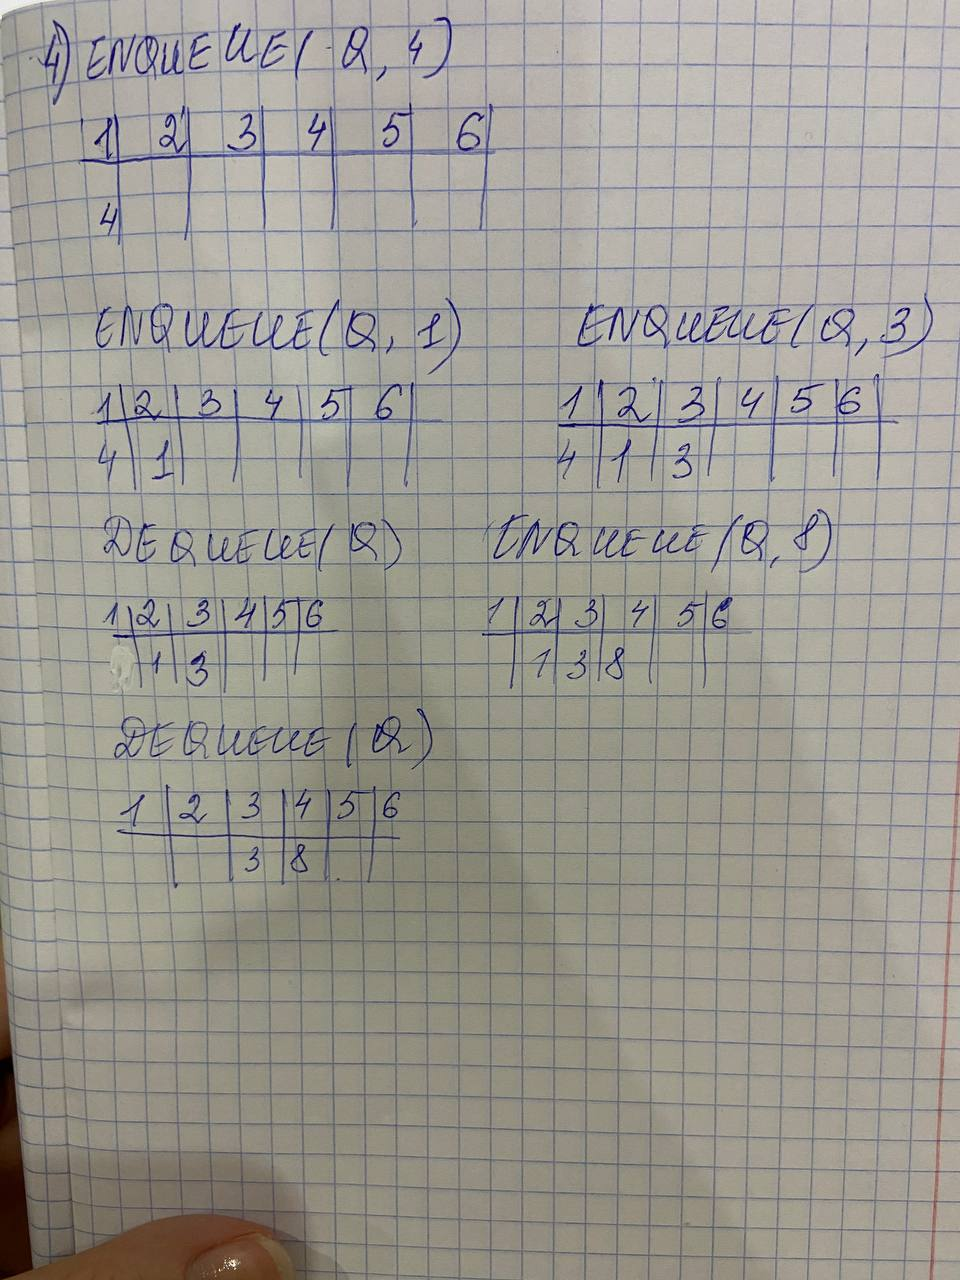 4) ENQUEUE(Q, 4)
1 2 3 4 5 6
4
ENQUEUE(Q, 1)
1 2 3 4 5 6
4 1
ENQUEUE(Q, 3)
1 2 3 4 5 6
4 1 3
DEQUEUE(Q)
1 2 3 4 5 6
1 3
ENQUEUE(Q, 8)
1 2 3 4 5 6
1 3 8
DEQUEUE(Q)
1 2 3 4 5 6
3 8